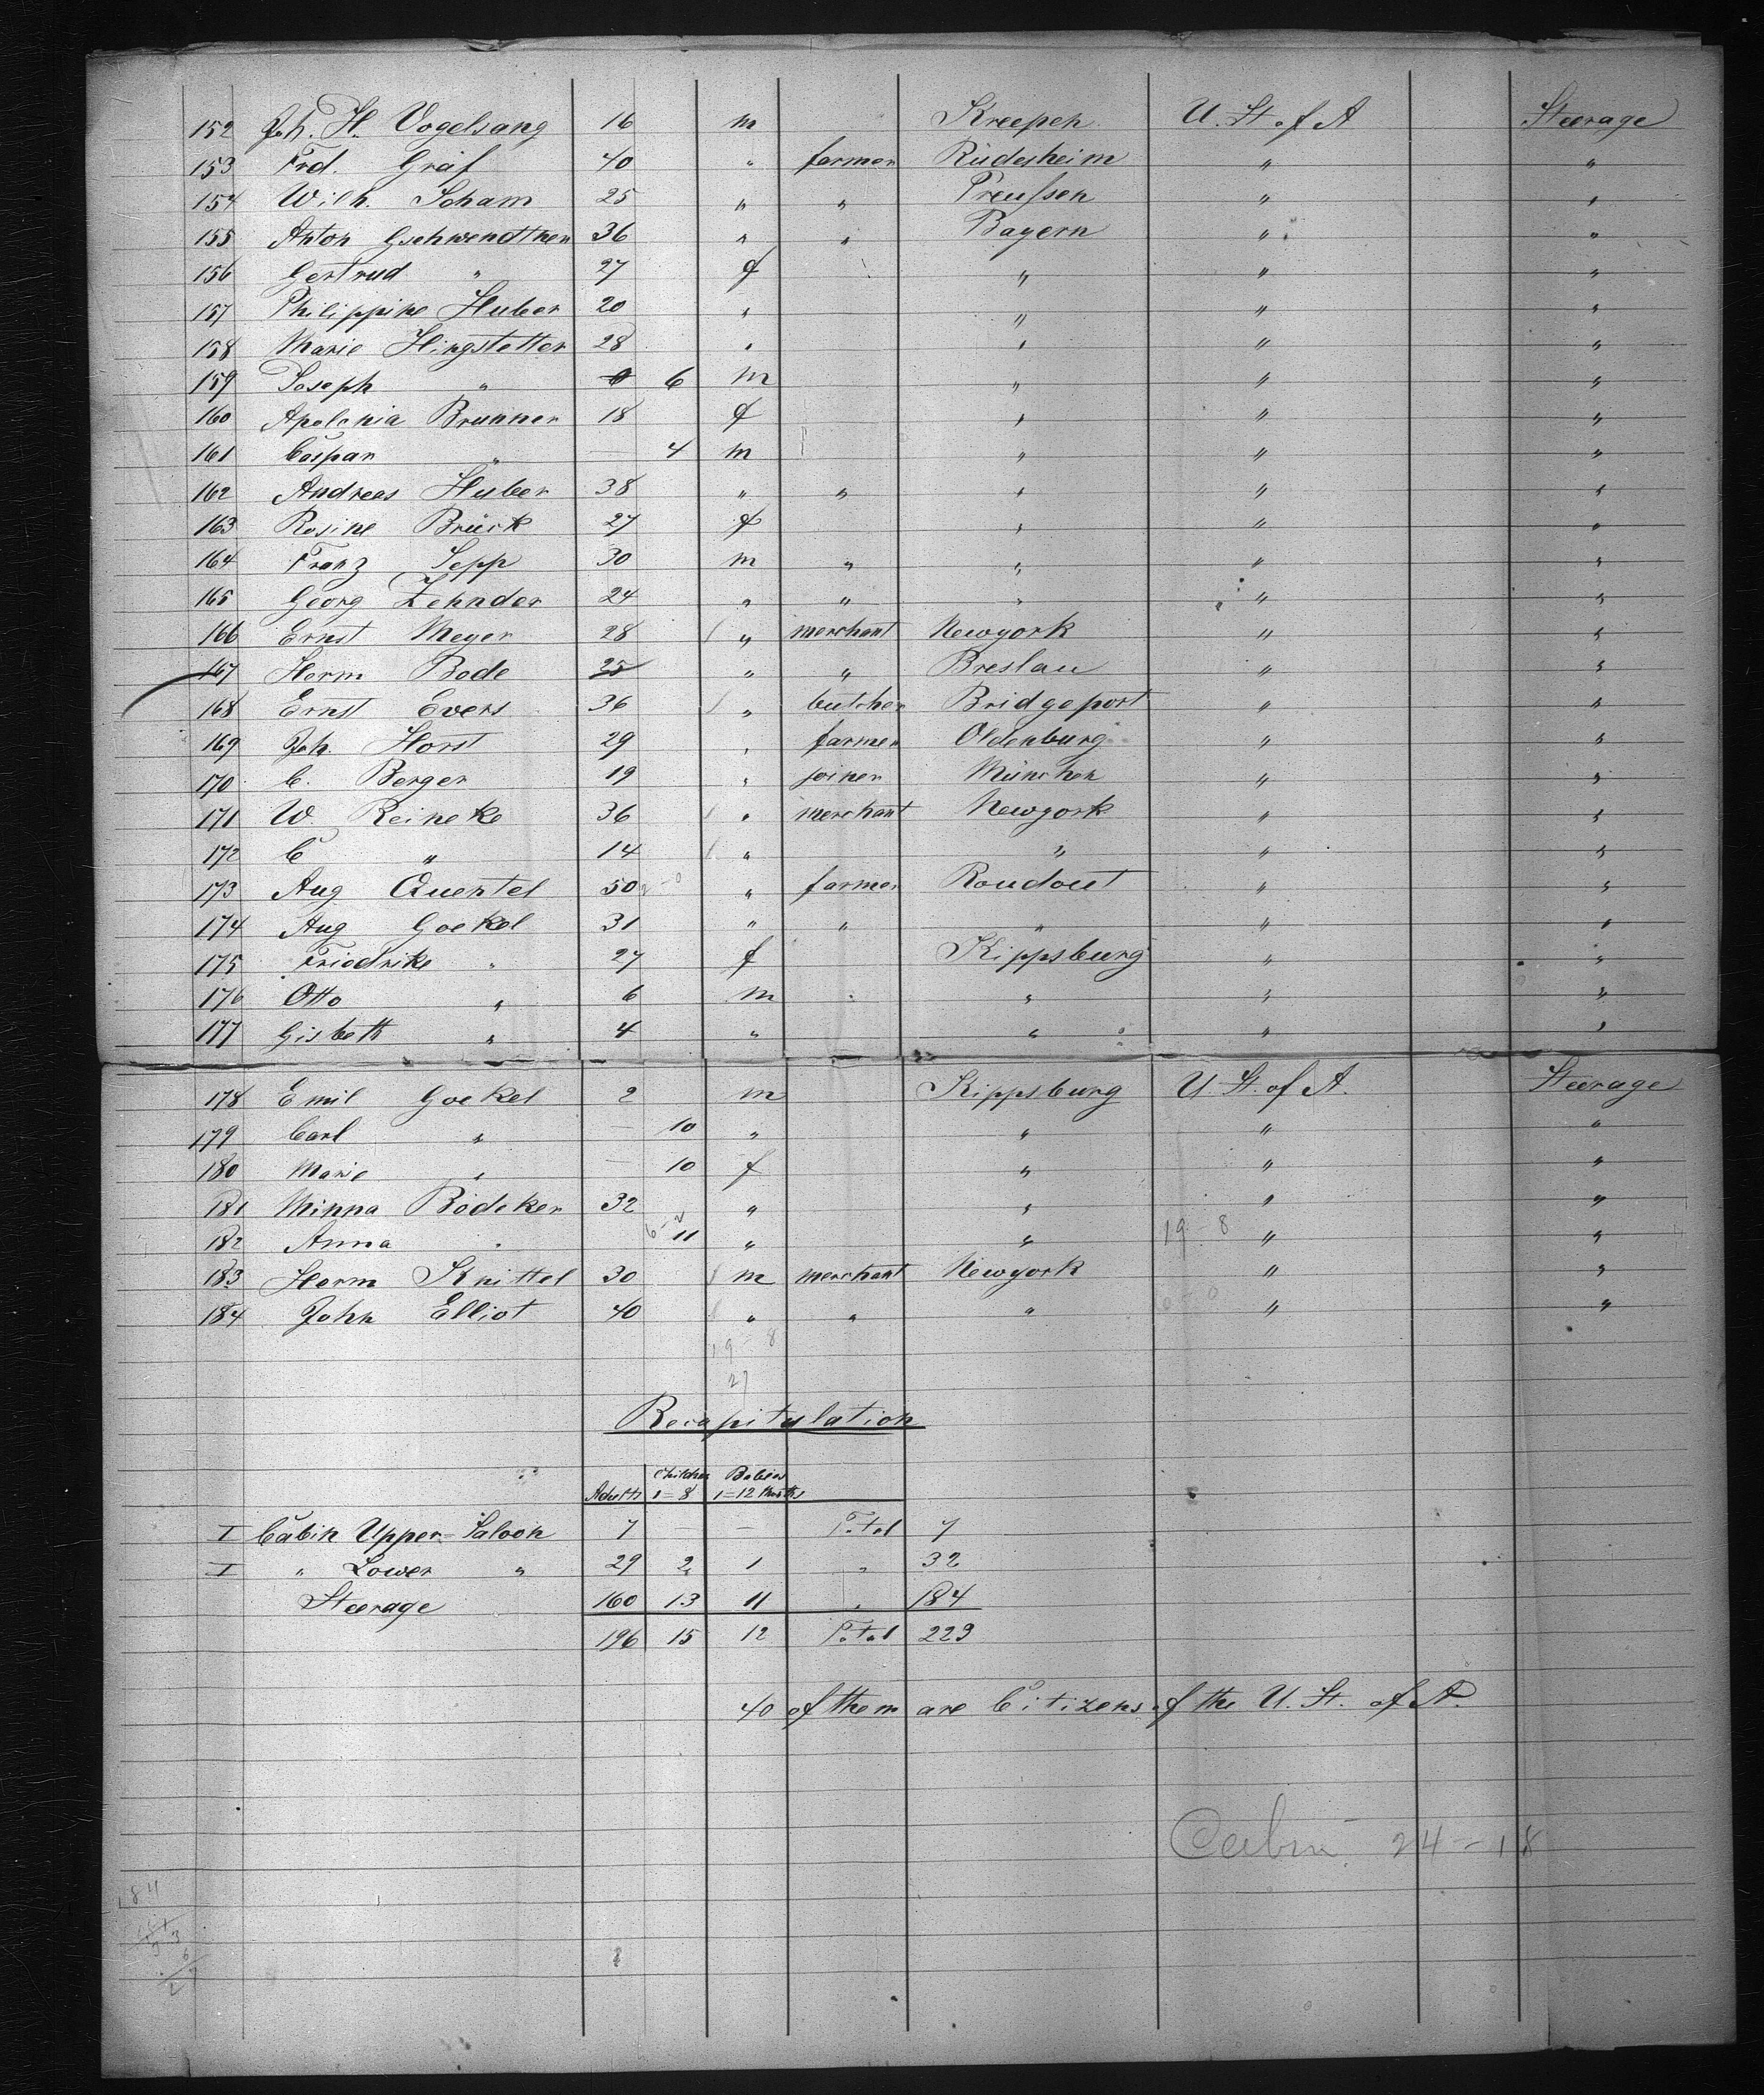 152 Joh. H. Vogelsang 16 m Kreepen U. St. of A Steerage
153 Frd. Gräf 40 " farmer Rüdesheim " "
154 Wilh. Scham 25 " " Preußen " "
155 Anton Gschwendtner 36 " " Bayern " "
156 Gertrud " 27 f " " "
157 Philippine Huber 20 " " " "
158 Marie Hingstetter 28 " " " "
159 Joseph " 6 m " " "
160 Apolonia Brunner 18 f " " "
161 Caspar " — 4 m " " "
162 Andreas Huber 38 " " " " "
163 Rosine Brück 27 f " " "
164 Franz Sepp 30 m " " " "
165 Georg Zehnder 24 " " " " "
166 Ernst Meyer 28 " merchant Newyork " "
167 Herm Bode 25 " " Breslau " "
168 Ernst Evers 36 " butcher Bridgeport " "
169 Joh. Horst 29 " farmer Oldenburg " "
170 C. Berger 19 " joiner München " "
171 W. Reineke 36 " merchant Newyork " "
172 C " 14 " " " "
173 Aug Quentel 50 " farmer Roudout " "
174 Aug Goekel 31 " " " " "
175 Friedrike " 27 f Kippsburg " "
176 Otto " 6 m " " "
177 Gisbett " 4 " " " "
178 Emil Goekel 2 m Kippsburg U. St. of A. Steerage
179 Carl " — 10 " " " "
180 Marie " — 10 f " " "
181 Minna Bödeker 32 " " " "
182 Anna " 11 " " 19-8 " "
183 Herm Knittel 30 m merchant Newyork " "
184 John Elliot 40 " " " " "
19-8
27
Recapitulation
Adults Children 1=8 Babies 1=12 Months
I Cabin Upper=Saloon 7 — — Total 7
I " Lower " 29 2 1 " 32
Steerage 160 13 11 " 184
196 15 12 Total 223
40 of them are Citizens of the U. St. of A.
Cabin 24-18
184